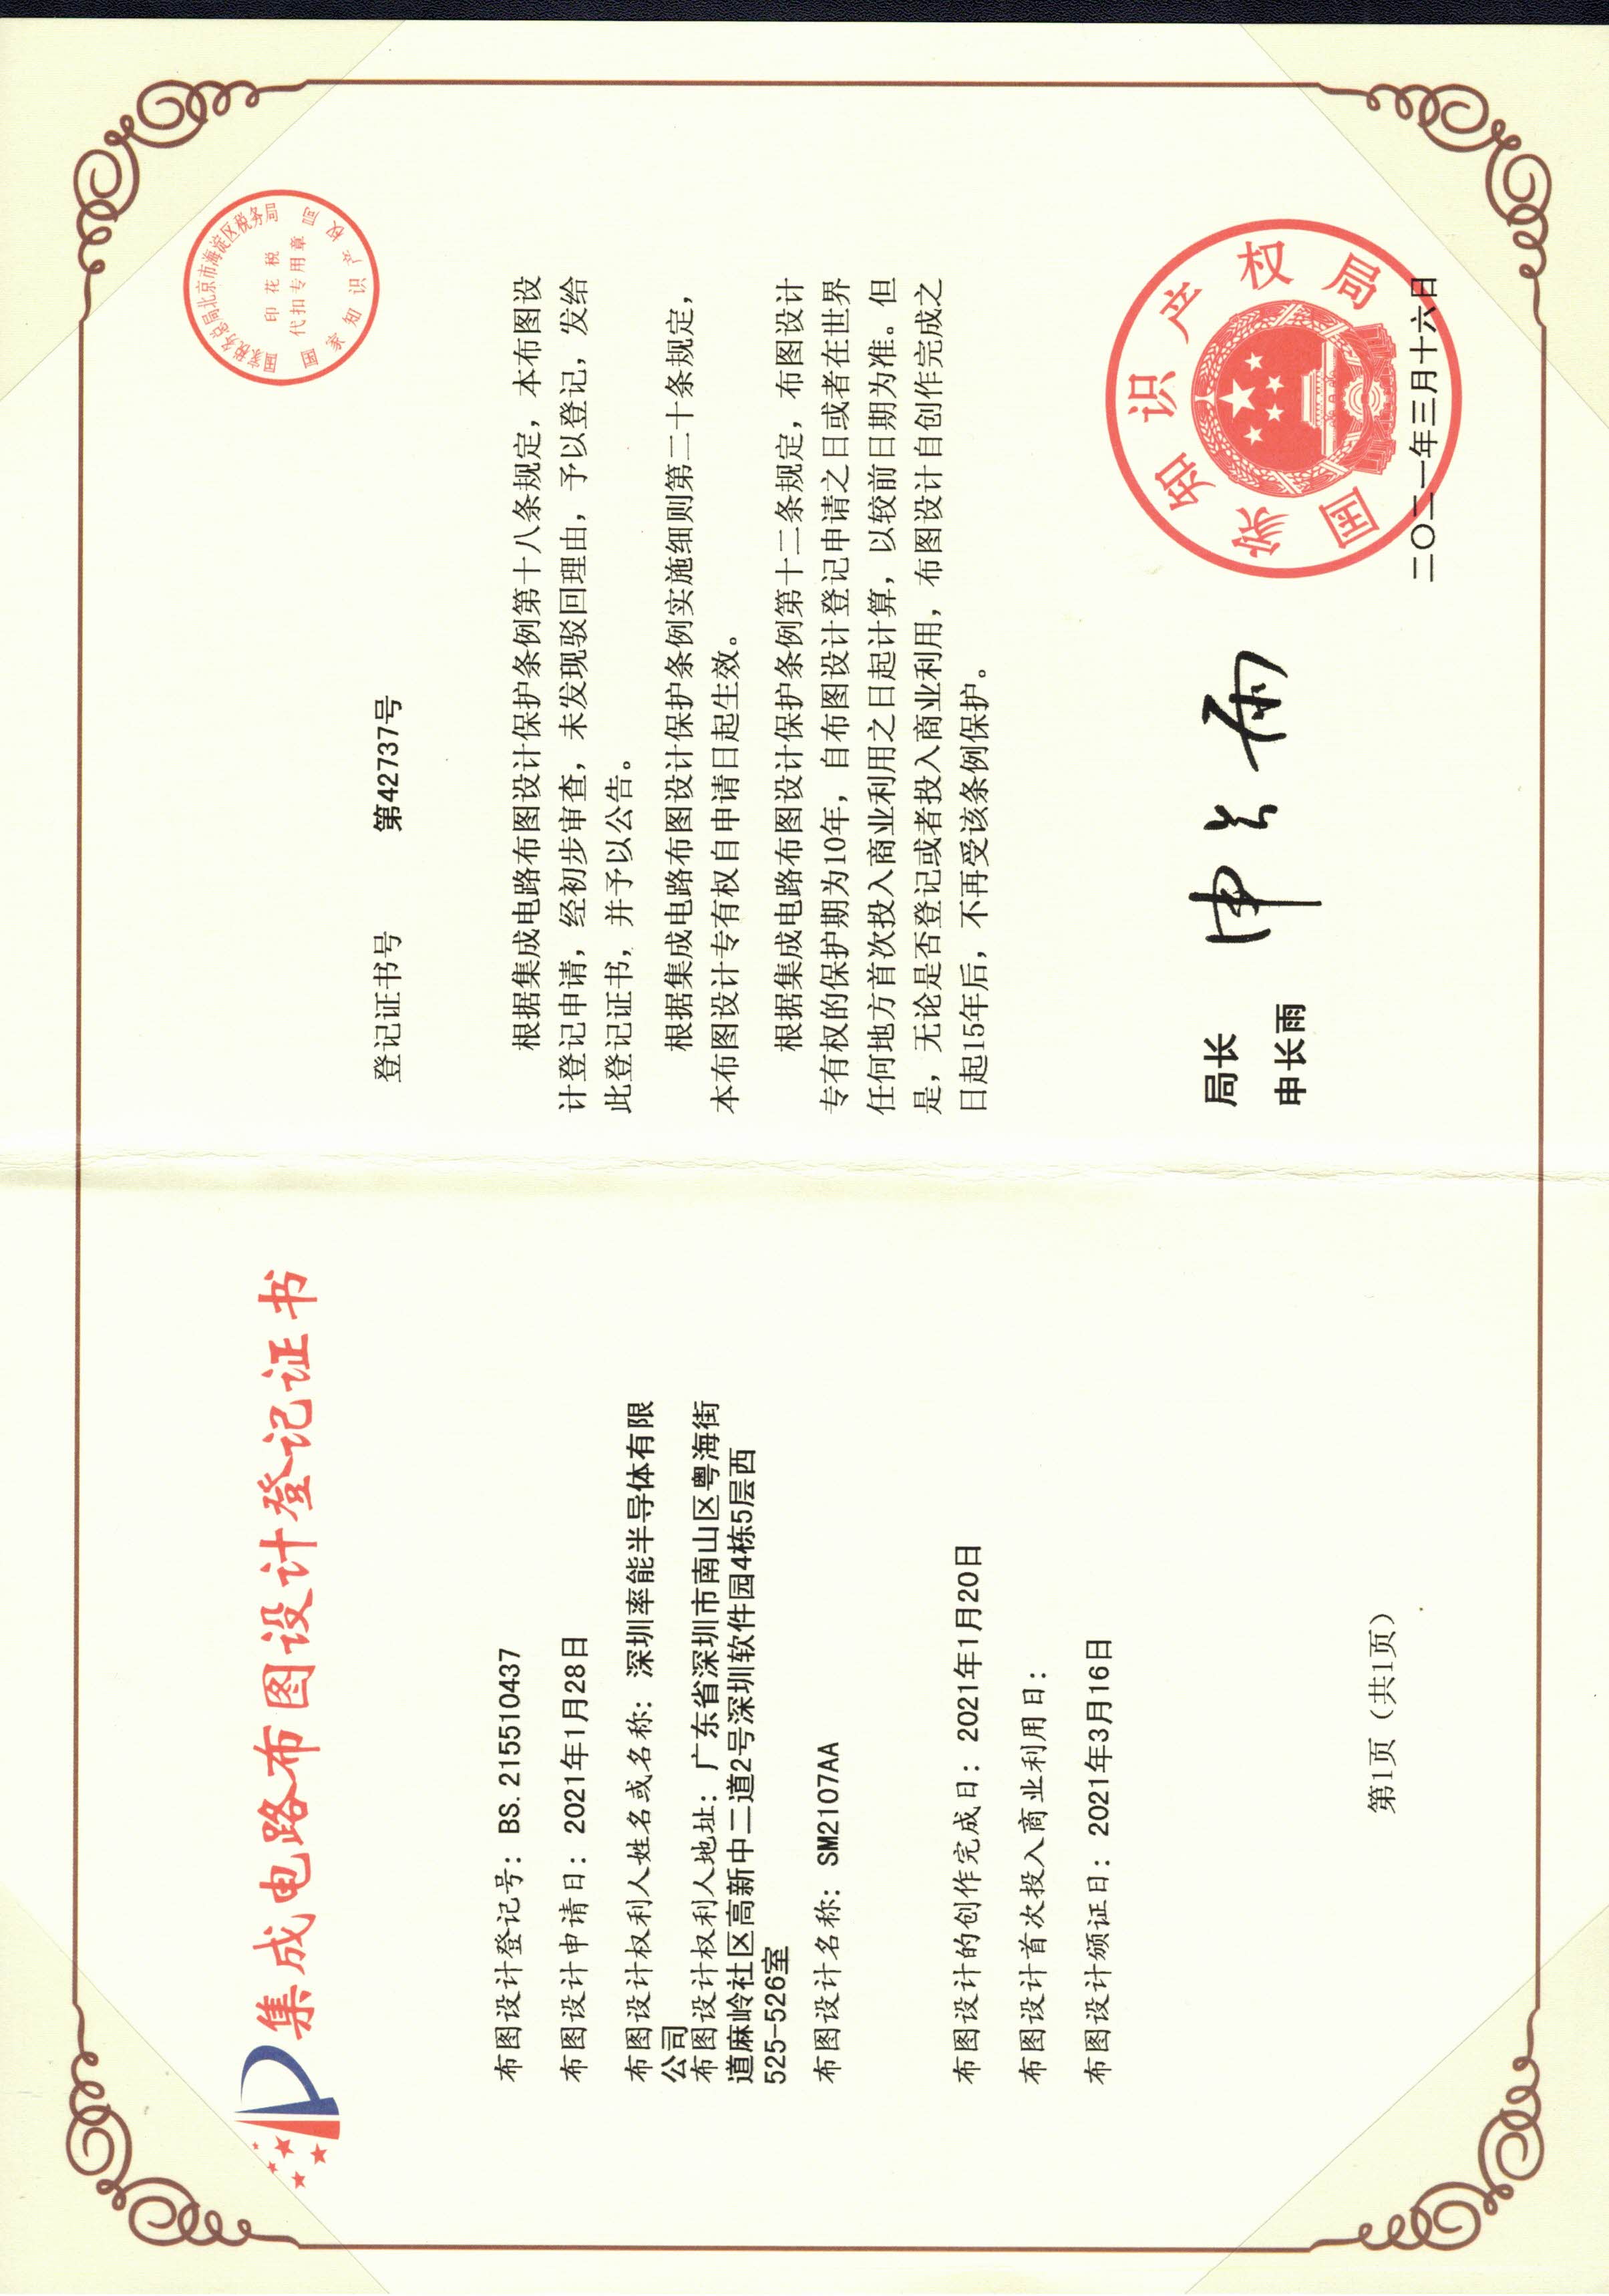 集成电路布图设计登记证书
布图设计登记号：BS.215510437
布图设计申请日：2021年1月28日
布图设计权利人姓名或名称：深圳率能半导体有限
公司
布图设计权利人地址：广东省深圳市南山区粤海街
道麻岭社区高新中二道2号深圳软件园4栋5层西
525-526室
布图设计名称：SM2107AA
布图设计的创作完成日：2021年1月20日
布图设计首次投入商业利用日：
布图设计颁证日：2021年3月16日
第1页（共1页）
国家税务总局北京市海淀区税务局
印花税
代扣专用章
国家知识产权局
登记证书号 第42737号
根据集成电路布图设计保护条例第十八条规定，本布图设
计登记申请，经初步审查，未发现驳回理由，予以登记，发给
此登记证书，并予以公告。
根据集成电路布图设计保护条例实施细则第二十条规定，
本布图设计专有权自申请日起生效。
根据集成电路布图设计保护条例第十二条规定，布图设计
专有权的保护期为10年，自布图设计登记申请之日或者在世界
任何地方首次投入商业利用之日起计算，以较前日期为准。但
是，无论是否登记或者投入商业利用，布图设计自创作完成之
日起15年后，不再受该条例保护。
局长
申长雨
申长雨
国家知识产权局
二〇二一年三月十六日